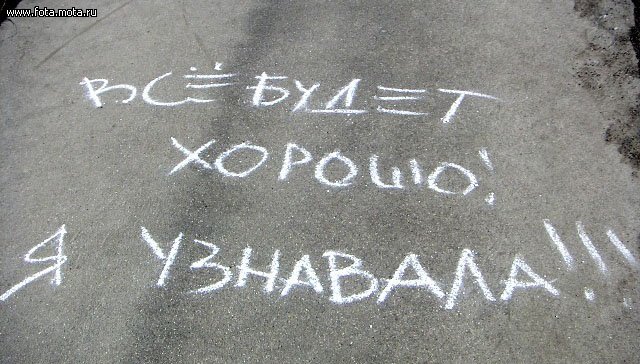 www.fota.mota.ru
ВСЁ БУДЕТ
ХОРОШО!
Я УЗНАВАЛА!!!